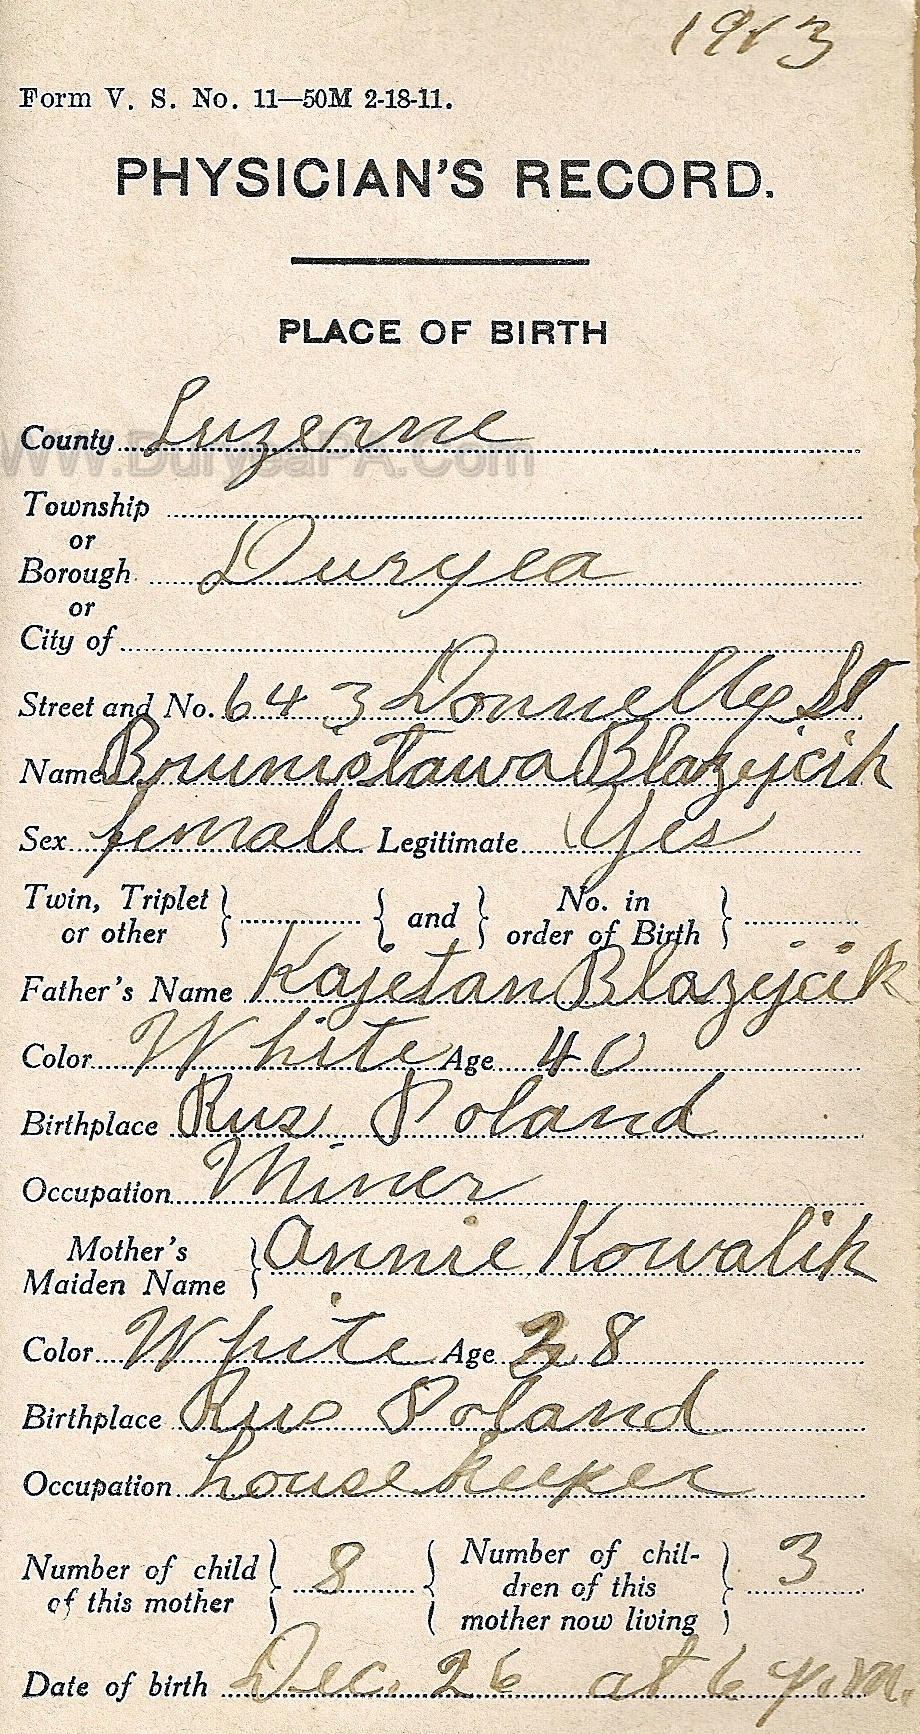 1913
Form V. S. No. 11—50M 2-18-11.
PHYSICIAN'S RECORD.
PLACE OF BIRTH
County Luzerne
WWW.DuryeaPA.Com
Township
or
Borough Duryea
or
City of
Street and No. 643 Donnelly St
Name Brunistawa Blazejcik
Sex female Legitimate Yes
Twin, Triplet or other } { and } No. in order of Birth }
Father's Name Kajetan Blazejcik
Color White Age 40
Birthplace Rus Poland
Occupation Miner
Mother's Maiden Name } Annie Kowalik
Color White Age 38
Birthplace Rus Poland
Occupation housekeeper
Number of child of this mother } 8 { Number of children of this mother now living } 3
Date of birth Dec. 26 at 6 p.m.